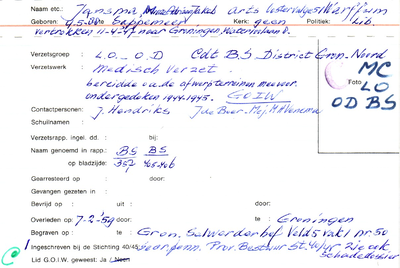 Naam etc.: Jansma, arts Westervalge Warffum
Geboren: 9-5-08 te Sappemeer Kerk: geen Politiek: Lib.
vertrokken 11-4-47 naar Groningen, 8.
Verzetsgroep : L.O. - O D Cdt B.S District Gron. Noord
Verzetswerk : Medisch verzet.
bereidde o.a. de afwerpterreinen mee voor.
ondergedoken 1944-1945. G O I W
MC
Foto LO
OD BS
Contactpersonen: J. Hendriks J. de Boer. Mej. H. Wenema
Schuilnamen :
Verzetsrapp. ingel. dd. : bij:
Naam genoemd in rapp.: BS BS
op bladzijde: 357 465-466
Gearresteerd op : door:
Gevangen gezeten in :
Bevrijd op : uit : door:
Overleden op : 7-2-'59 door: te : Groningen
Begraven op : te : Gron. Selwerderhof Veld 5 vak 1 nr. 50
Ingeschreven bij de Stichting 40/45: Prov. Bestuur St. 40/45 zie ook
Lid G.O.I.W. geweest: Ja / Neen Schadedossier